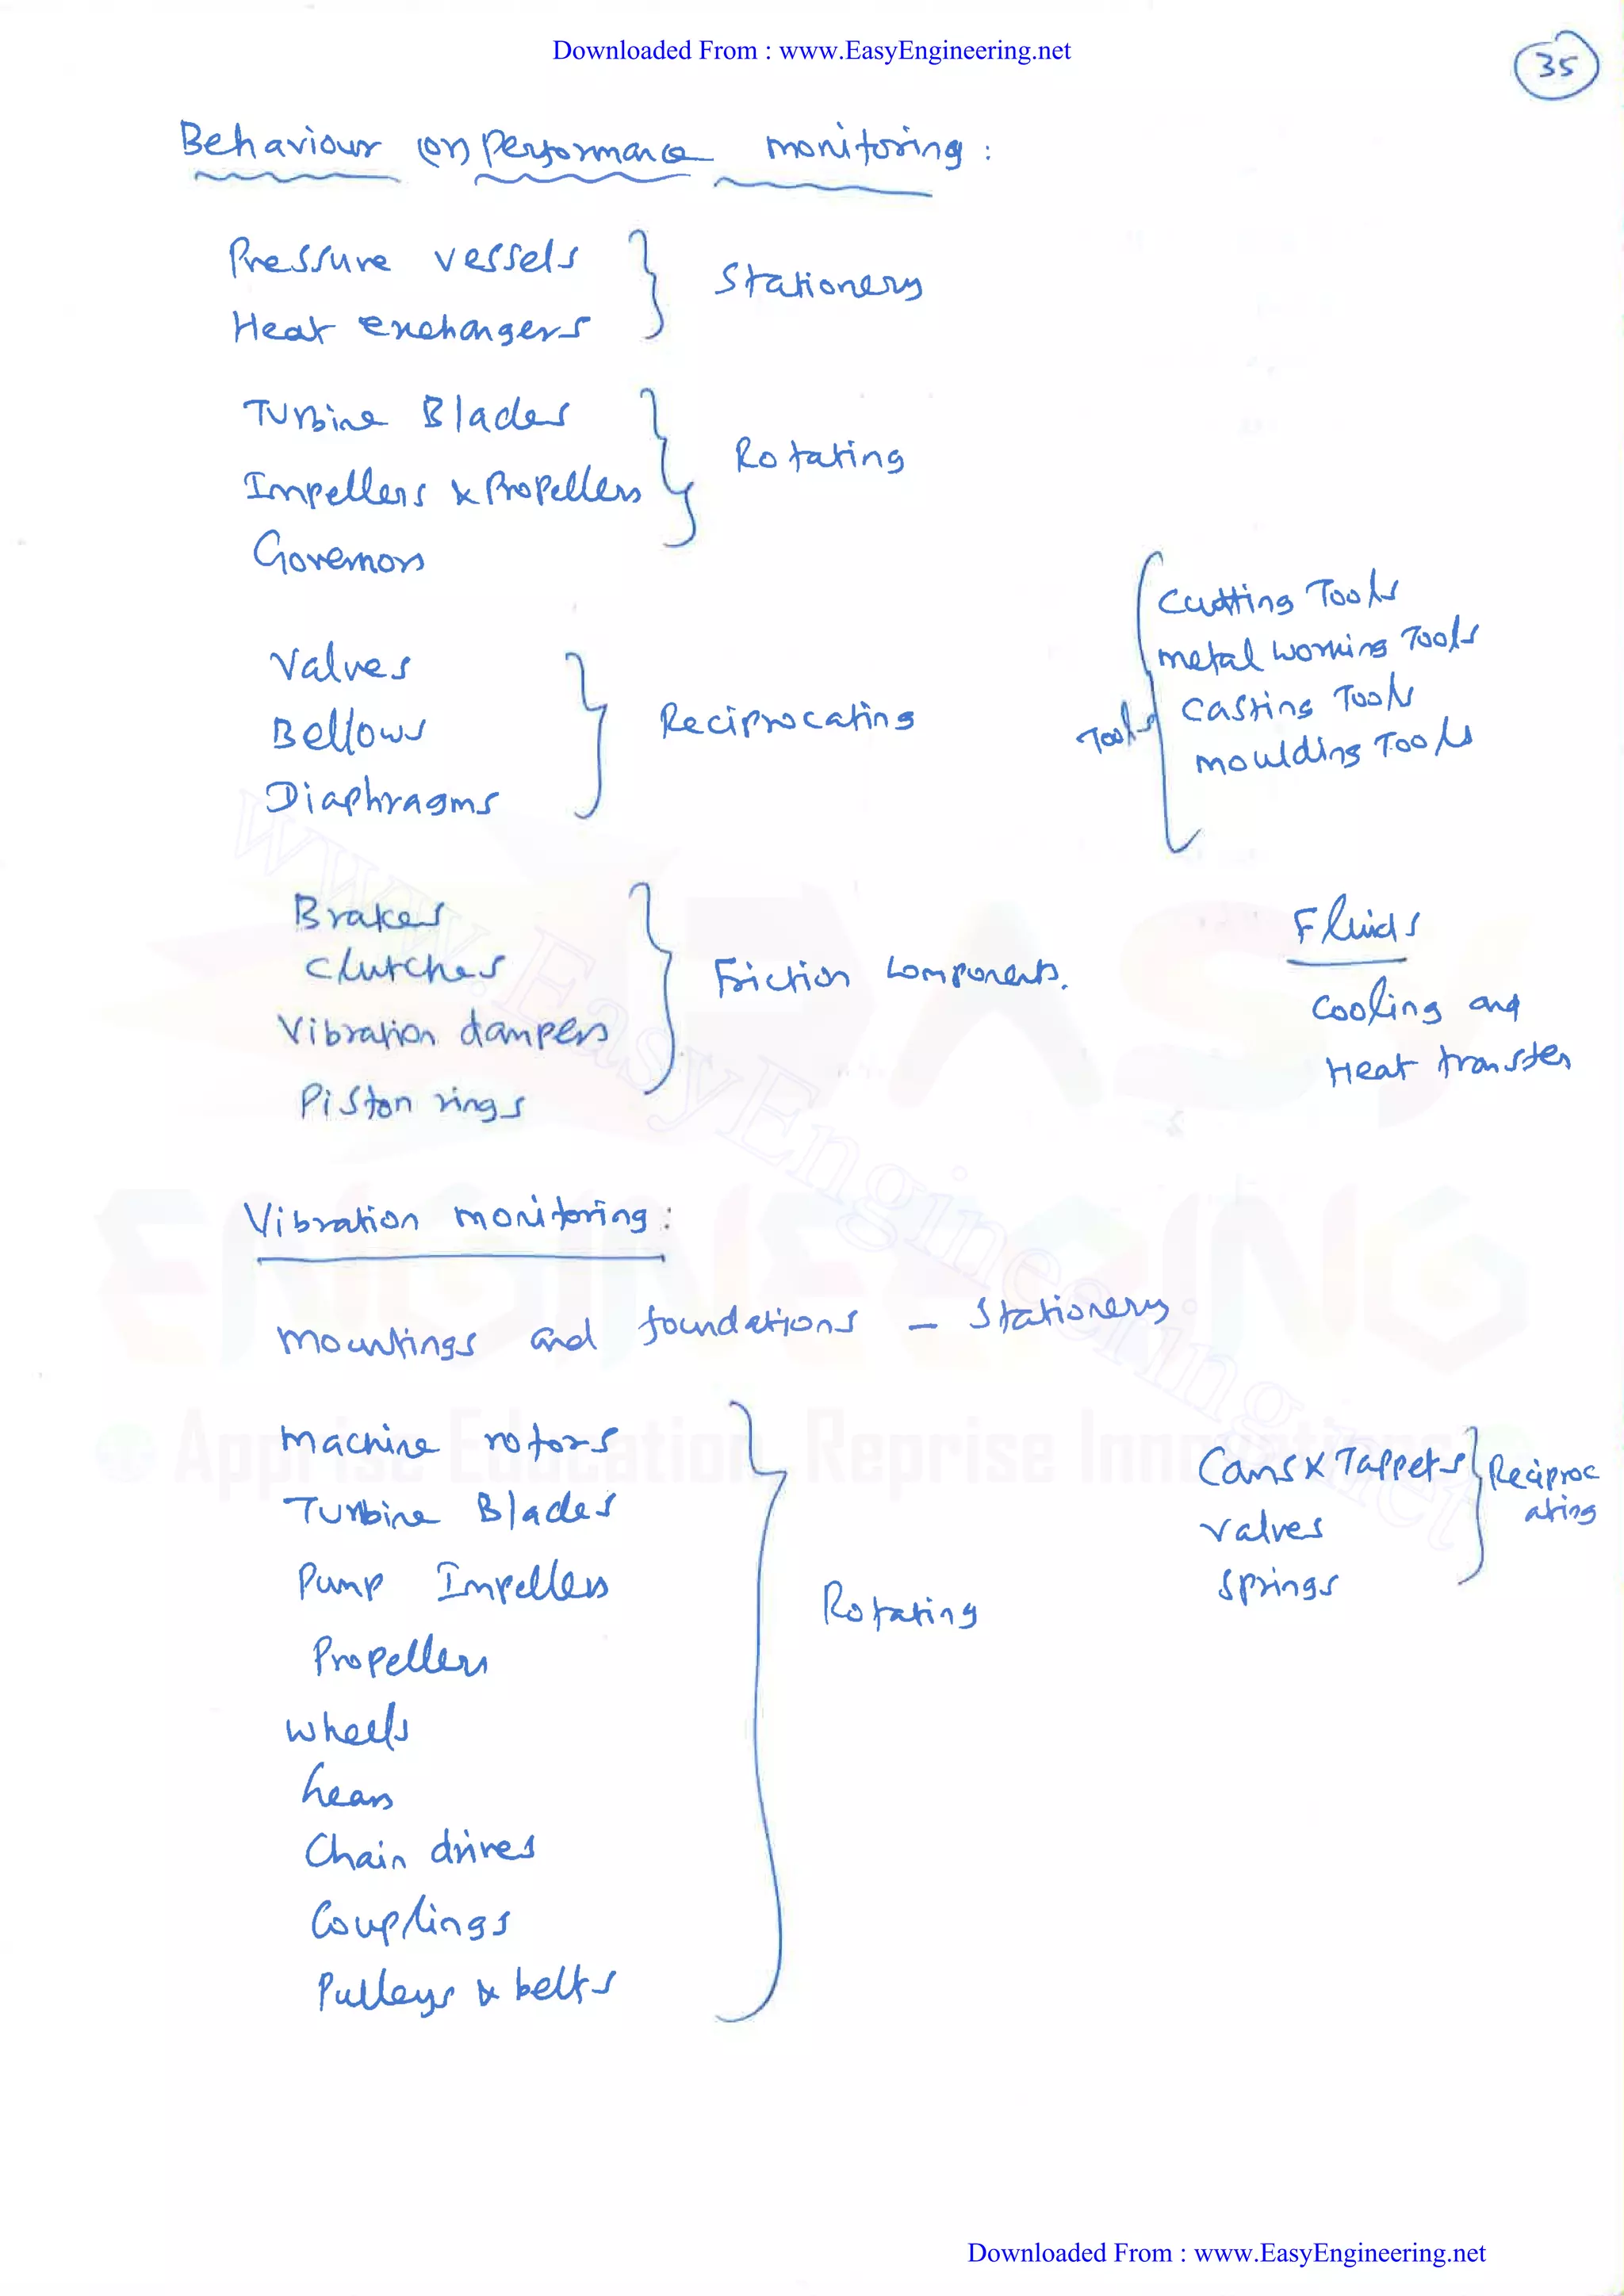 Downloaded From : www.EasyEngineering.net
35
Behaviour (or) Performance monitoring :
Pressure vessels
Heat exchangers
Stationery
Turbine Blades
Impellers & Propellers
Governors
Rotating
Valves
Bellows
Diaphragms
Reciprocating
Tools
Cutting Tools
metal working Tools
Casting Tools
moulding Tools
Brakes
Clutches
Vibration dampers
Piston rings
Friction Components.
Fluids
Cooling and
Heat transfer
Vibration monitoring :
Mountings and foundations – Stationery
Machine rotors
Turbine Blades
Pump Impellers
Propellers
Wheels
Gears
Chain drives
Couplings
Pulleys & belts
Rotating
Cams & Tappets
Valves
Springs
Reciproc
ating
www.EasyEngineering.net
EASY
ENGINEERING
Apprise Education, Reprise Innovations
Downloaded From : www.EasyEngineering.net